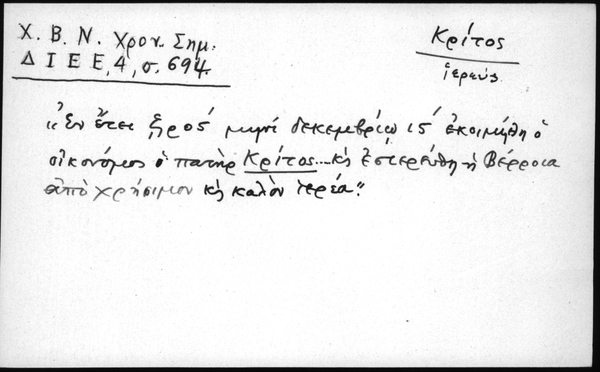 Χ. Β. Ν. Χρον. Σημ.
ΔΙΕΕ, 4, σ. 694.
Κρίτος
ἱερεύς
"Ἐν ἔτει ͵ϛροϛ́ μηνί δεκεμβρίῳ ιϛ́ ἐκοιμήθη ὁ
οἰκονόμος ὁ πατὴρ Κρίτος.... κὴ ἐστερεύθη ἡ Βέρροια
ἀπὸ χρήσιμον κὴ καλὸν ἱερέα."